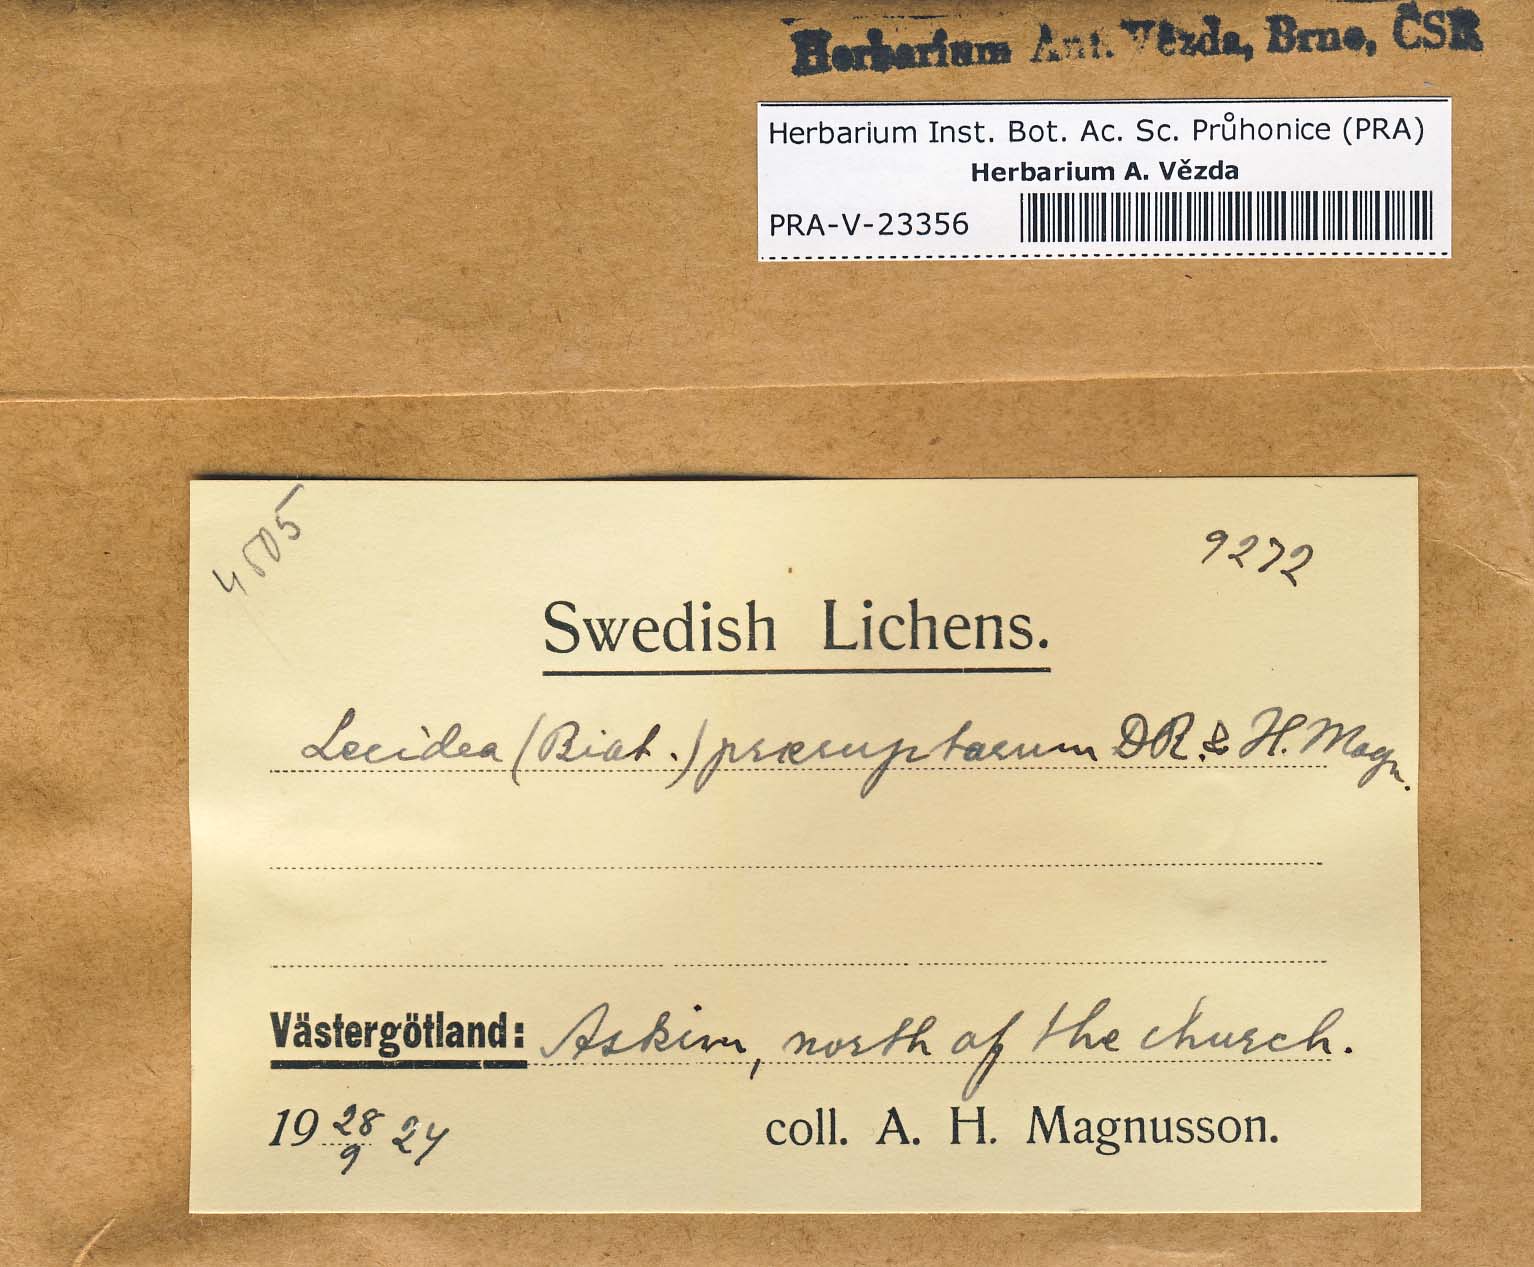 Herbarium Ant. Vězda, Brno, ČSR
Herbarium Inst. Bot. Ac. Sc. Průhonice (PRA)
Herbarium A. Vězda
PRA-V-23356
4505
9272
Swedish Lichens.
Lecidea (Biat.) praeruptarum DR. & H. Magn.
Västergötland: Askim, north of the church.
19 28/9 24 coll. A. H. Magnusson.